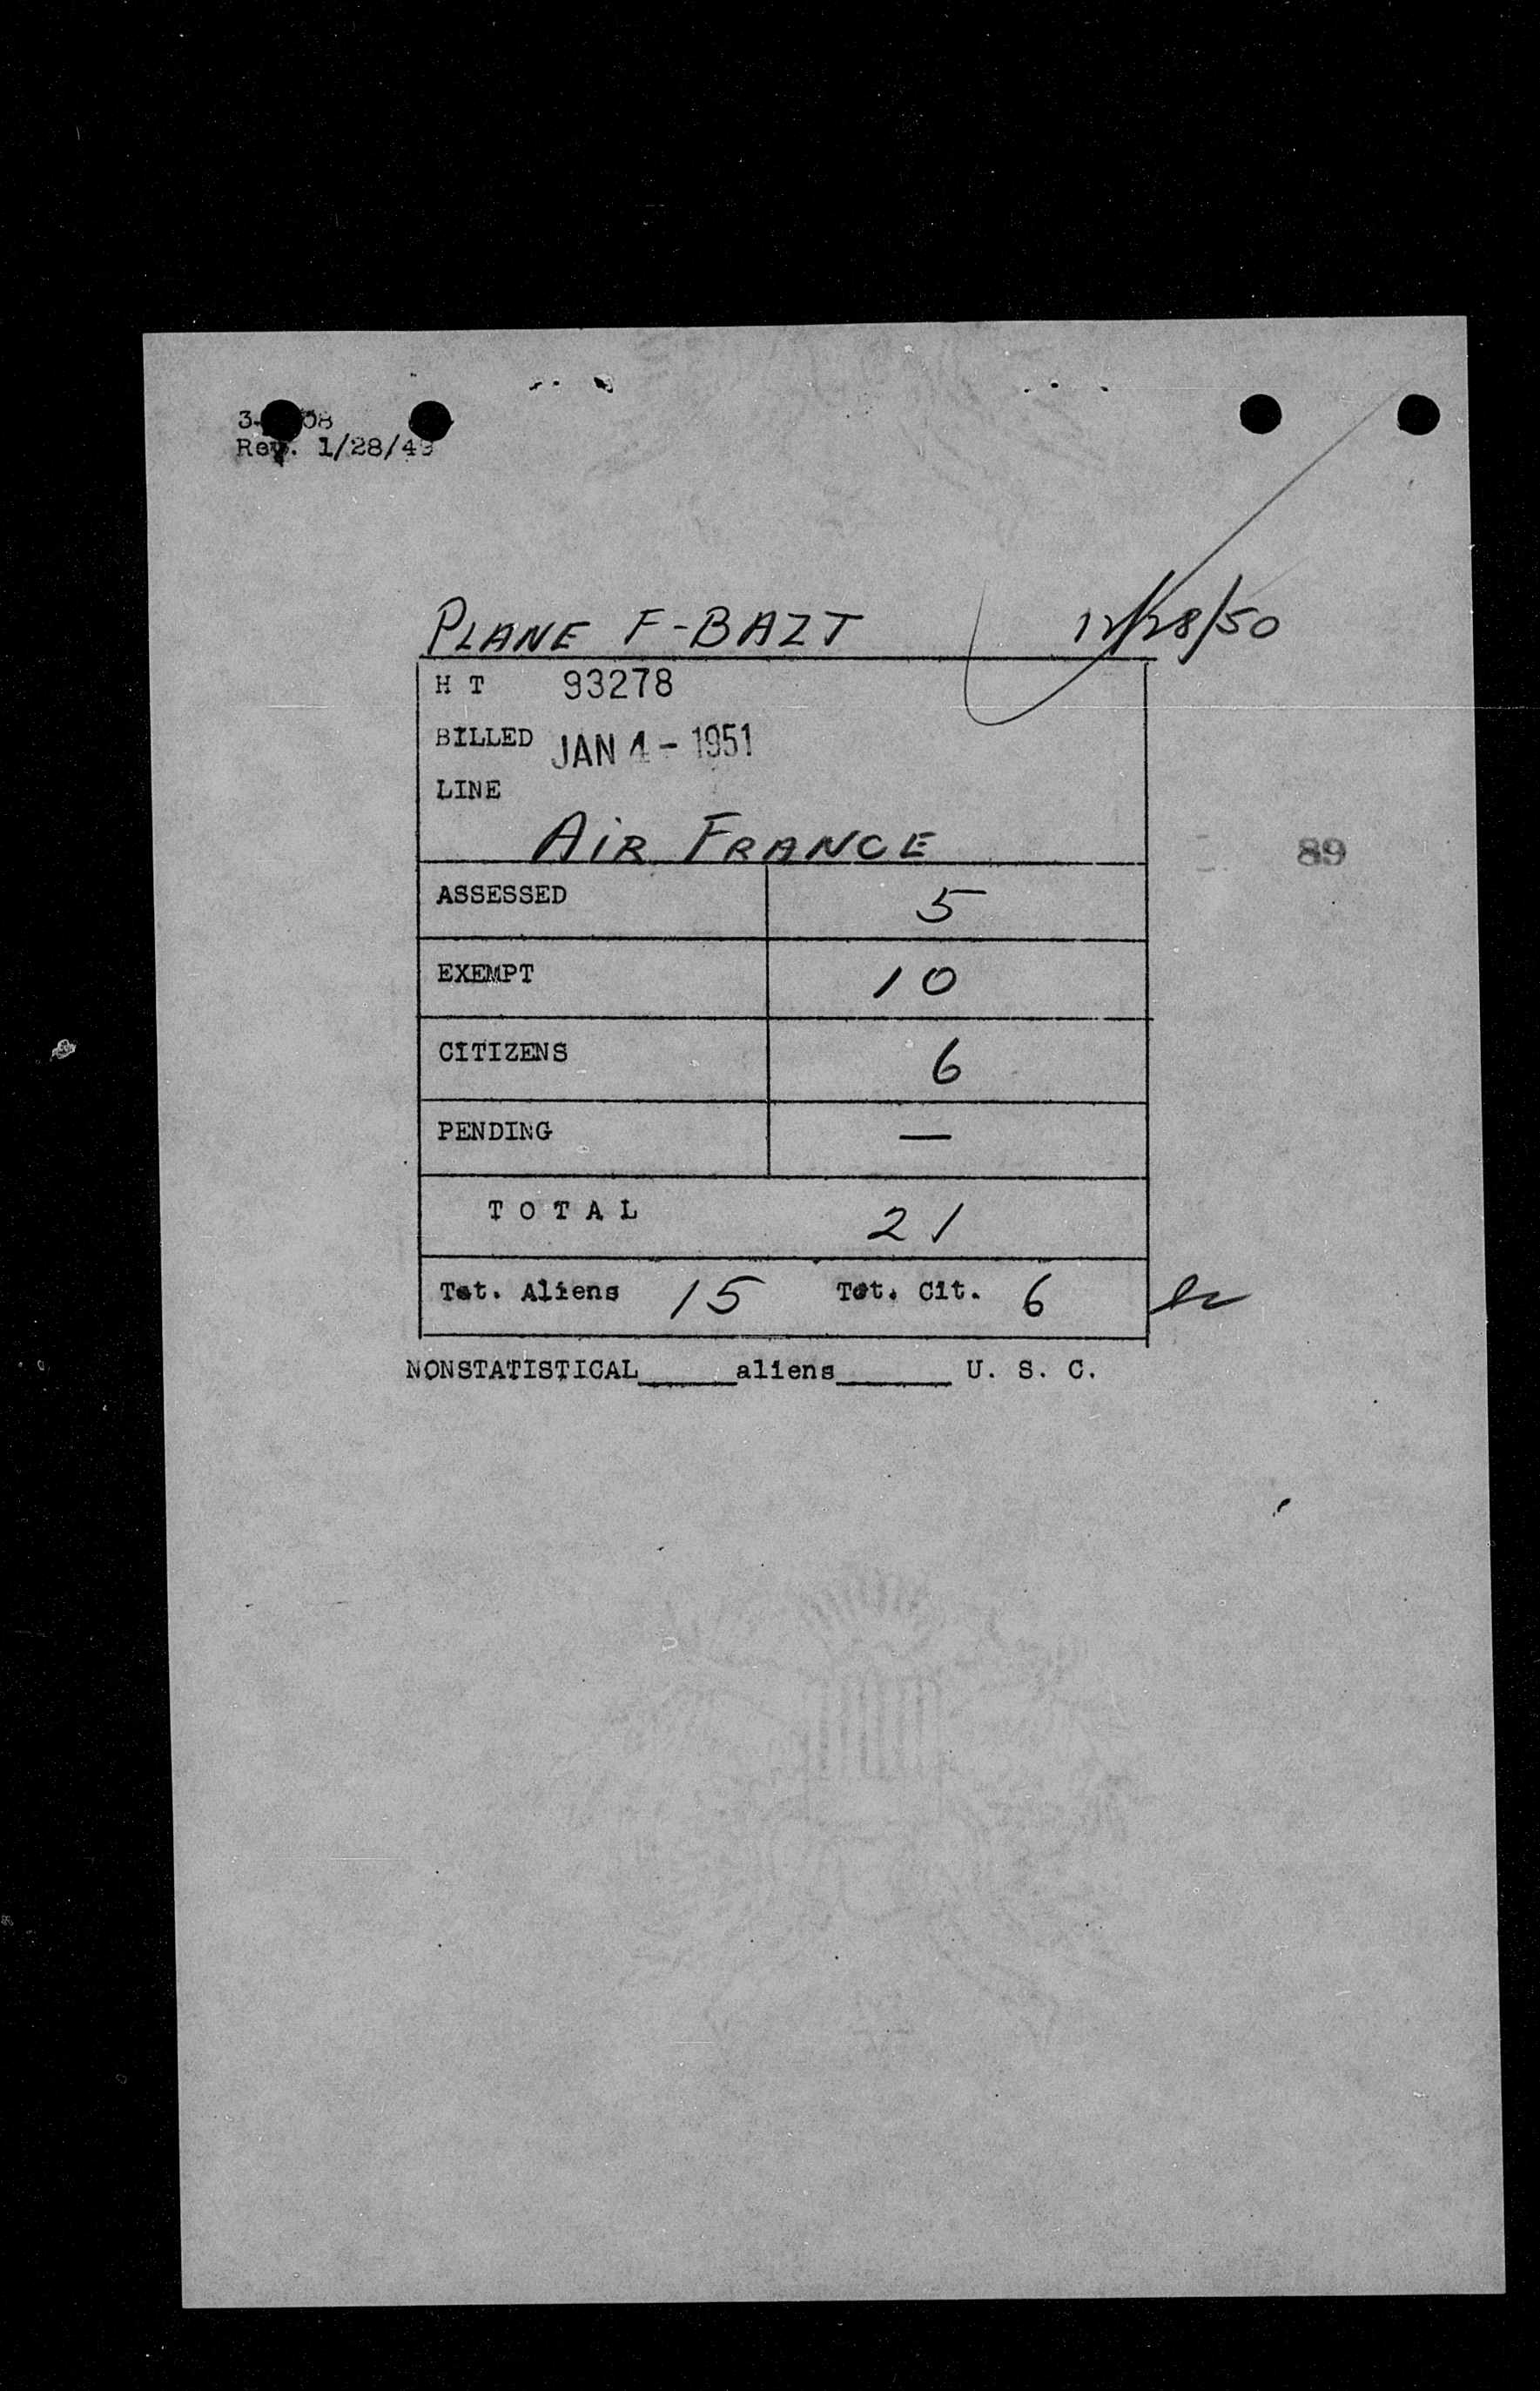 Rev. 1/28/49
PLANE F-BAZT 12/28/50
H T 93278
BILLED JAN 4 - 1951
LINE
AIR FRANCE
89
ASSESSED 5
EXEMPT 10
CITIZENS 6
PENDING —
TOTAL 21
Tot. Aliens 15 Tot. Cit. 6
NONSTATISTICAL_____aliens______ U. S. C.